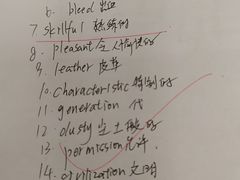 6. bleed 出血
7. skillful 熟练的
8. pleasant 令人愉快的
9. leather 皮革
10. characteristic 特别的
11. generation 代
12. dusty 尘土般的
13. permission 允许
14. civilization 文明